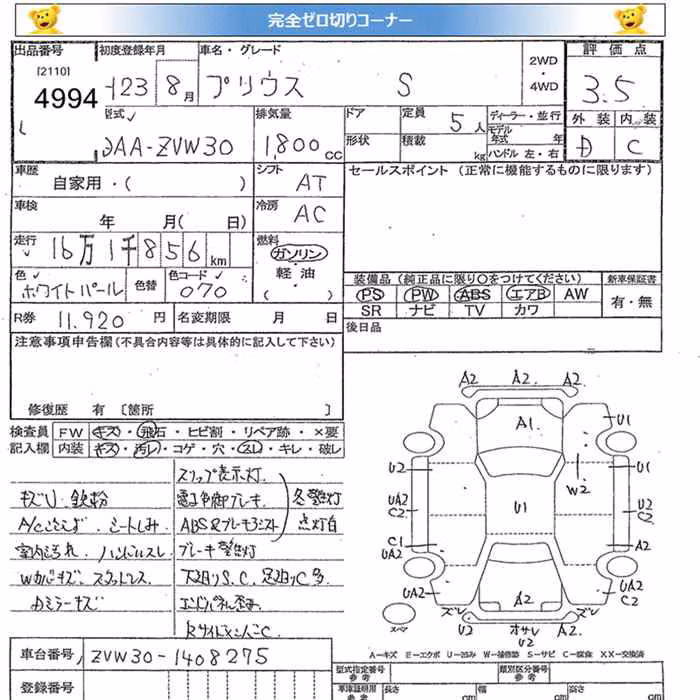 完全ゼロ切りコーナー
出品番号 初度登録年月 車名・グレード 2WD・4WD 評価点
[2110]
4994 H23 8月 プリウス S 3.5
型式 排気量 ドア 定員 5人 ディーラー・並行 外装 内装
DAA-ZVW30 1,800cc 形状 積載 kg モデル年式 年 D C
ハンドル 左・右
車歴 シフト AT セールスポイント (正常に機能するものに限ります)
自家用・( )
車検 年 月( 日) 冷房 AC
走行 16万1千856km 燃料 ガソリン
軽油
( )
色 ホワイトパール 色替 色コード 070
装備品 (純正品に限り〇をつけてください) 新車保証書
PS PW ABS エアB AW 有・無
SR ナビ TV カワ
R券 11,920円 名変期限 月 日 後日品
注意事項申告欄(不具合内容等は具体的に記入して下さい)
修復歴 有 [箇所 ]
検査員 FW キズ・飛石・ヒビ割・リペア跡・×要
記入欄 内装 キズ・汚レ・コゲ・穴・スレ・キレ・破レ
スリップ表示灯
キズU 鉄粉 電子制御ブレーキ 各警告灯
シートしみ ABS&ブレーキアシスト 点灯有
室内汚れ ハンドルスレ ブレーキ警告灯
下廻りS.C. 足廻りC多
ミラーキズ
A2 A2. A2
A1. U1
U2 W2 U1
UA2 C2 U1 U2 C2
C1 UA2 A2
UA2 A2 UA2 C2
ズレ ズレ
スペア U2 オサレ U2 A2
A-キズ E-エクボ U-凹み W-補修跡 S-サビ C-腐食 XX-交換済
車台番号 ZVW30-1408275
型式指定番号 参考 類別区分番号 参考
登録番号 車庫証明用 参考 長さ cm 幅 cm 高さ cm